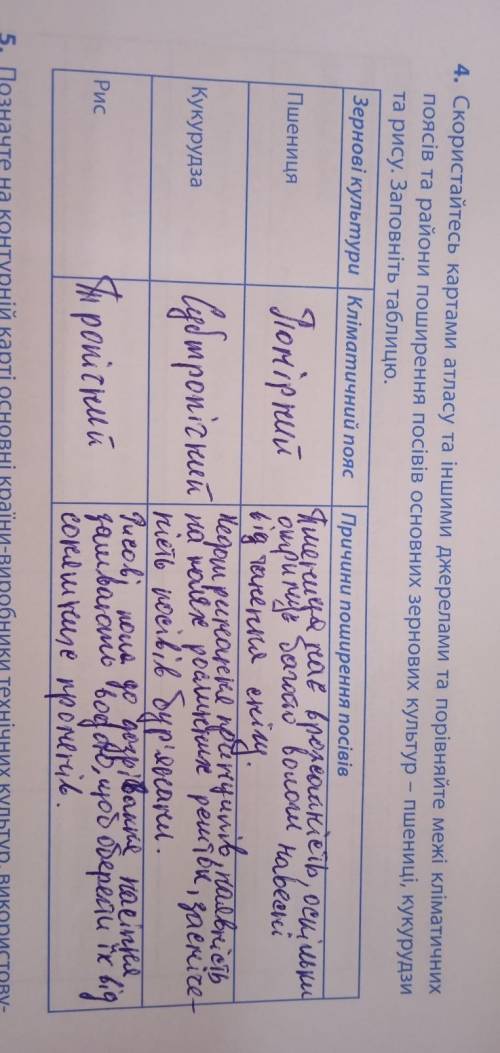 4. Скористайтесь картами атласу та іншими джерелами та порівняйте межі кліматичних
поясів та райони поширення посівів основних зернових культур – пшениці, кукурудзи
та рису. Заповніть таблицю.
Зернові культури Кліматичний пояс Причини поширення посівів
Пшениця
Помірний
Пшениця має врожайність, оскільки
отримує багато вологи навесні
від танення снігу.
Кукурудза
Субтропічний
на полях рослинних решток, засміче-
ність посівів бур'янами.
Рис
Тропічний
Рисові поля до дозрівання насіння
заливають водою, щоб вберегти їх від
сонячних променів.
5. Позначте на контурній карті основні країни-виробники технічних культур, використову-